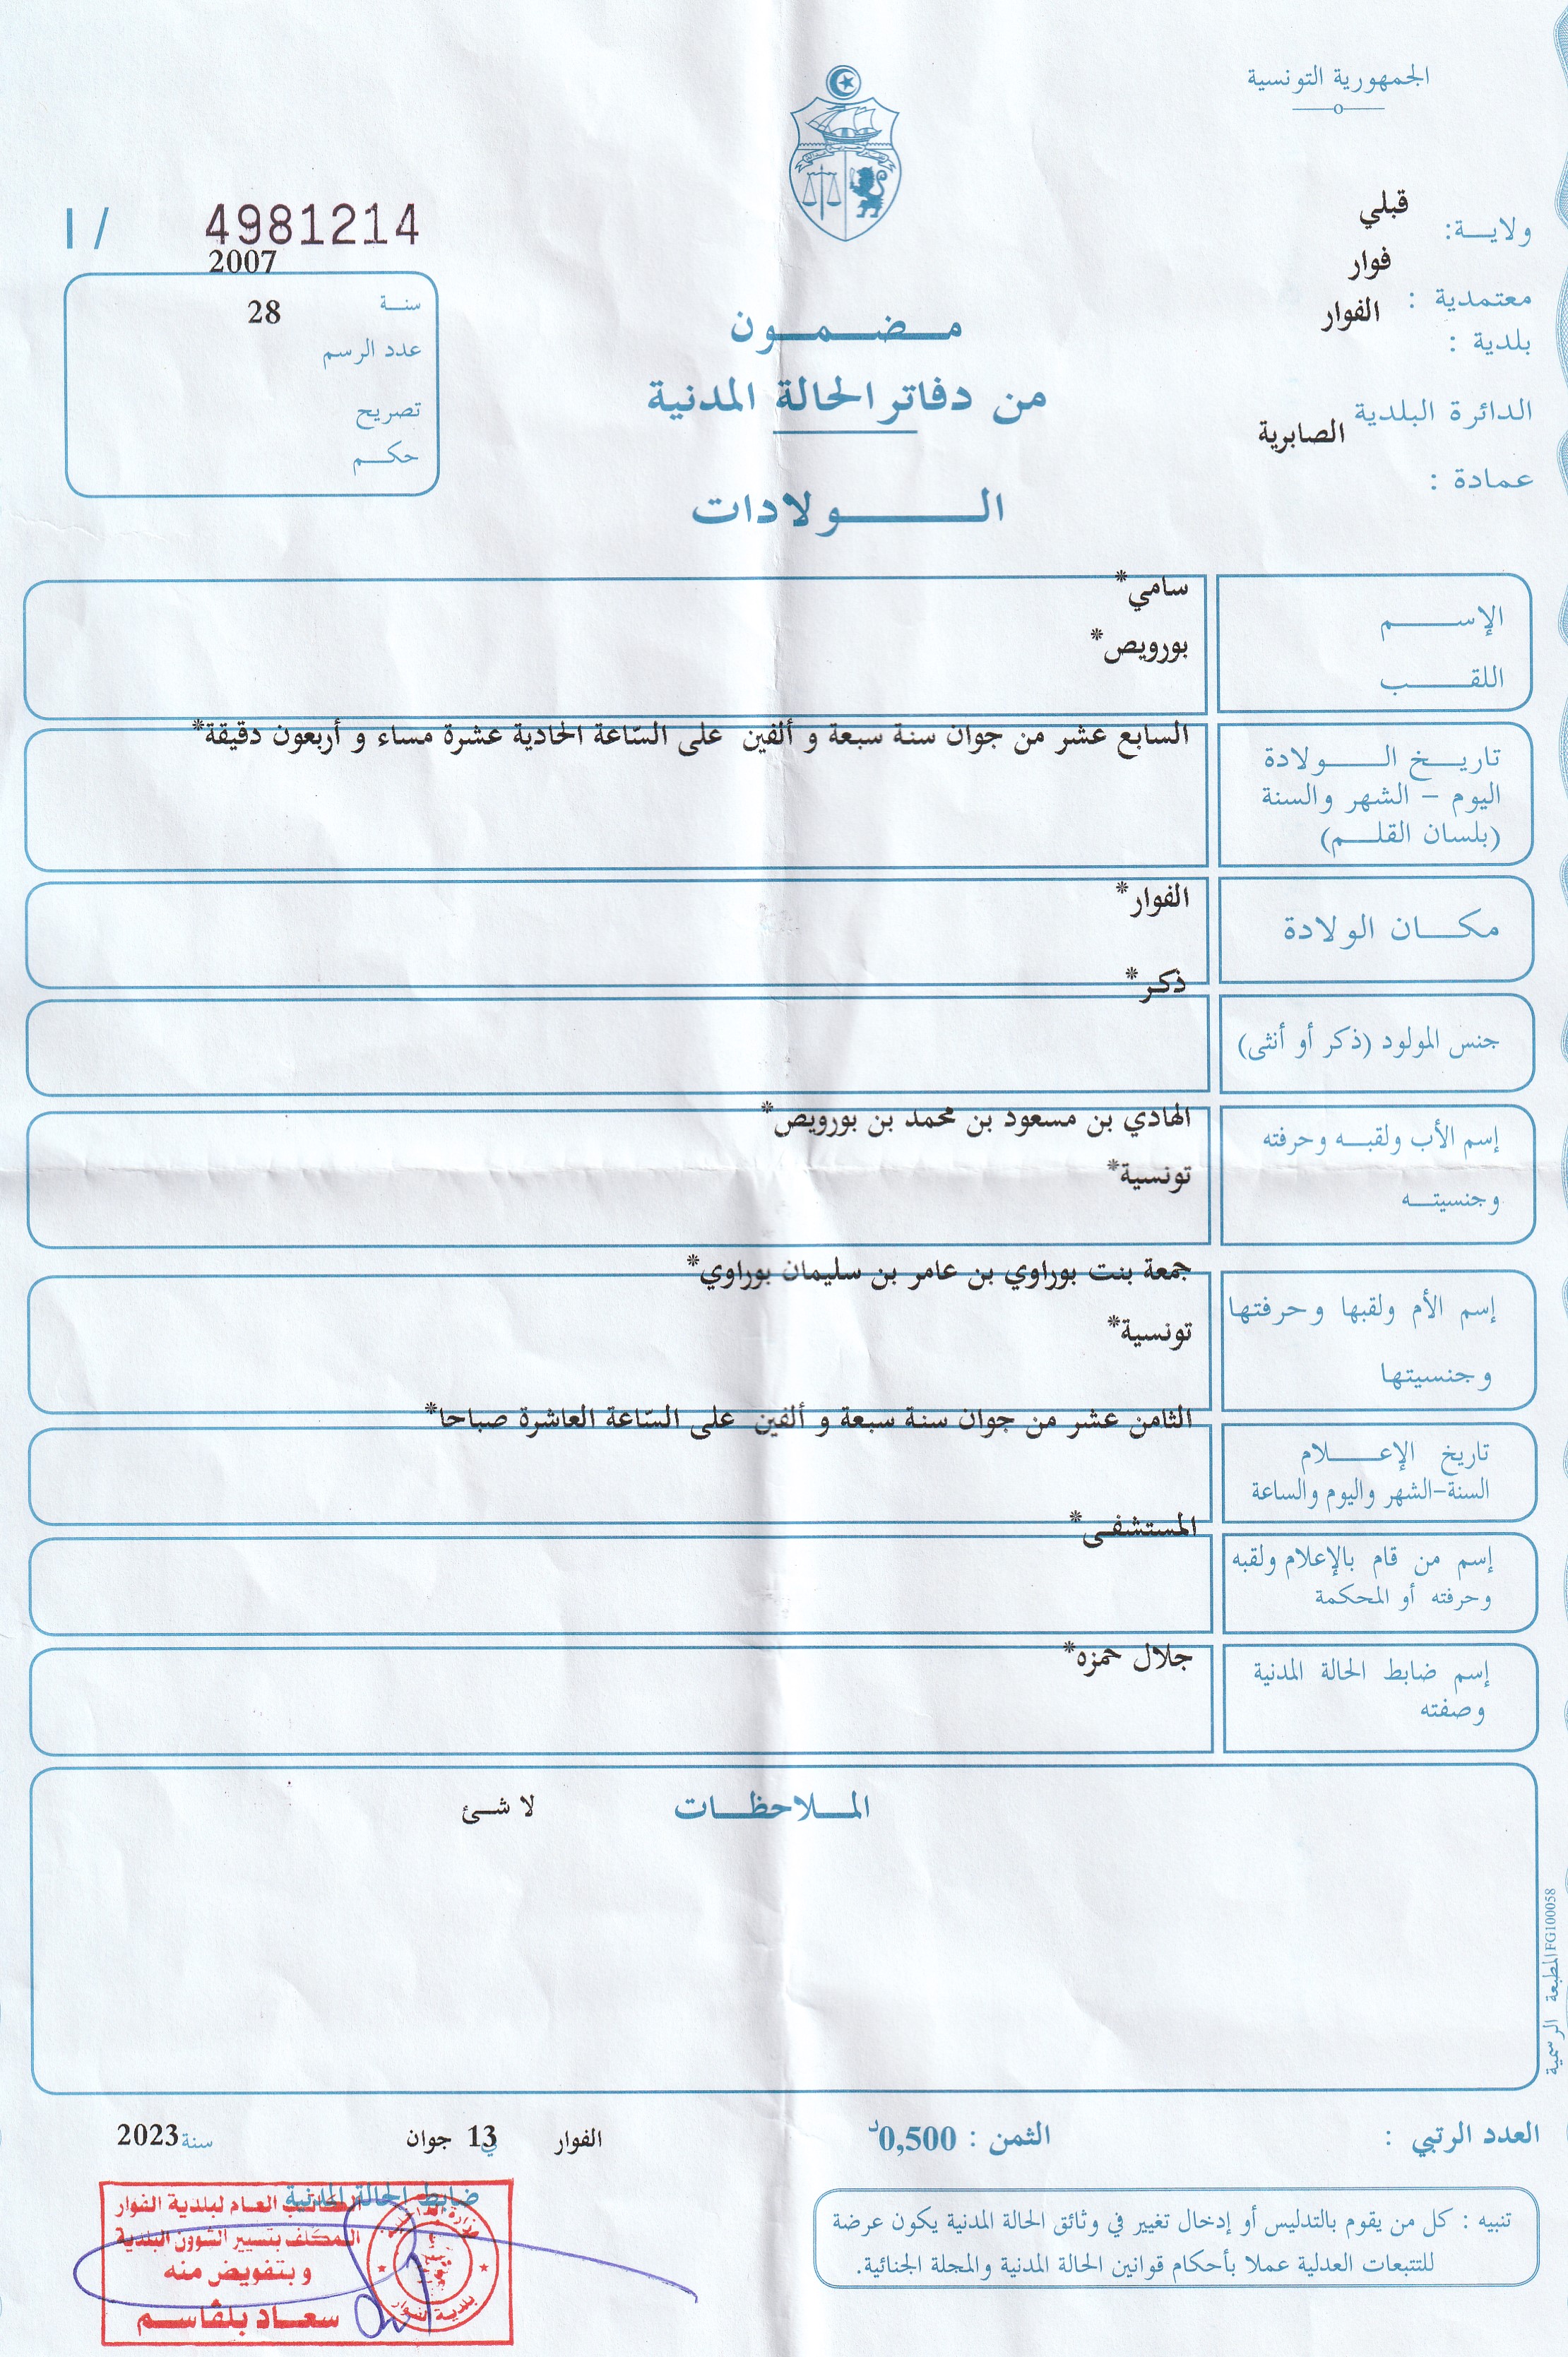 الجمهورية التونسية
ولاية: قبلي
معتمدية : فوار
بلدية : الفوار
الدائرة البلدية الصابرية
عمادة :
4981214 / I
2007
سنة
28
عدد الرسم
تصريح
حكم
مضمون
من دفاتر الحالة المدنية
الولادات
الإسم سامي*
اللقب بورويص*
تاريخ الولادة
اليوم - الشهر والسنة
(بلسان القلم)
السابع عشر من جوان سنة سبعة و ألفين على السّاعة الحادية عشرة مساء و أربعون دقيقة*
مكان الولادة الفوار*
جنس المولود (ذكر أو أنثى) ذكر*
إسم الأب ولقبه وحرفته الهادي بن مسعود بن محمد بن بورويص*
وجنسيته تونسية*
إسم الأم ولقبها وحرفتها جمعة بنت بوراوي بن عامر بن سليمان بوراوي*
وجنسيتها تونسية*
تاريخ الإعلام
السنة-الشهر واليوم والساعة
الثامن عشر من جوان سنة سبعة و ألفين على السّاعة العاشرة صباحا*
إسم من قام بالإعلام ولقبه
وحرفته أو المحكمة
المستشفى*
إسم ضابط الحالة المدنية
وصفته
جلال حمزه*
الملاحظات لا شئ
المطبعة الرسمية FG100058
العدد الرتبي : الثمن : 0,500د الفوار في 13 جوان سنة 2023
تنبيه : كل من يقوم بالتدليس أو إدخال تغيير في وثائق الحالة المدنية يكون عرضة
للتتبعات العدلية عملا بأحكام قوانين الحالة المدنية والمجلة الجنائية.
ضابط الحالة المدنية
الكاتب العام لبلدية الفوار
المكلف بتسيير الشؤون البلدية
وبتفويض منه
سعاد بلقاسم
بلدية الفوار